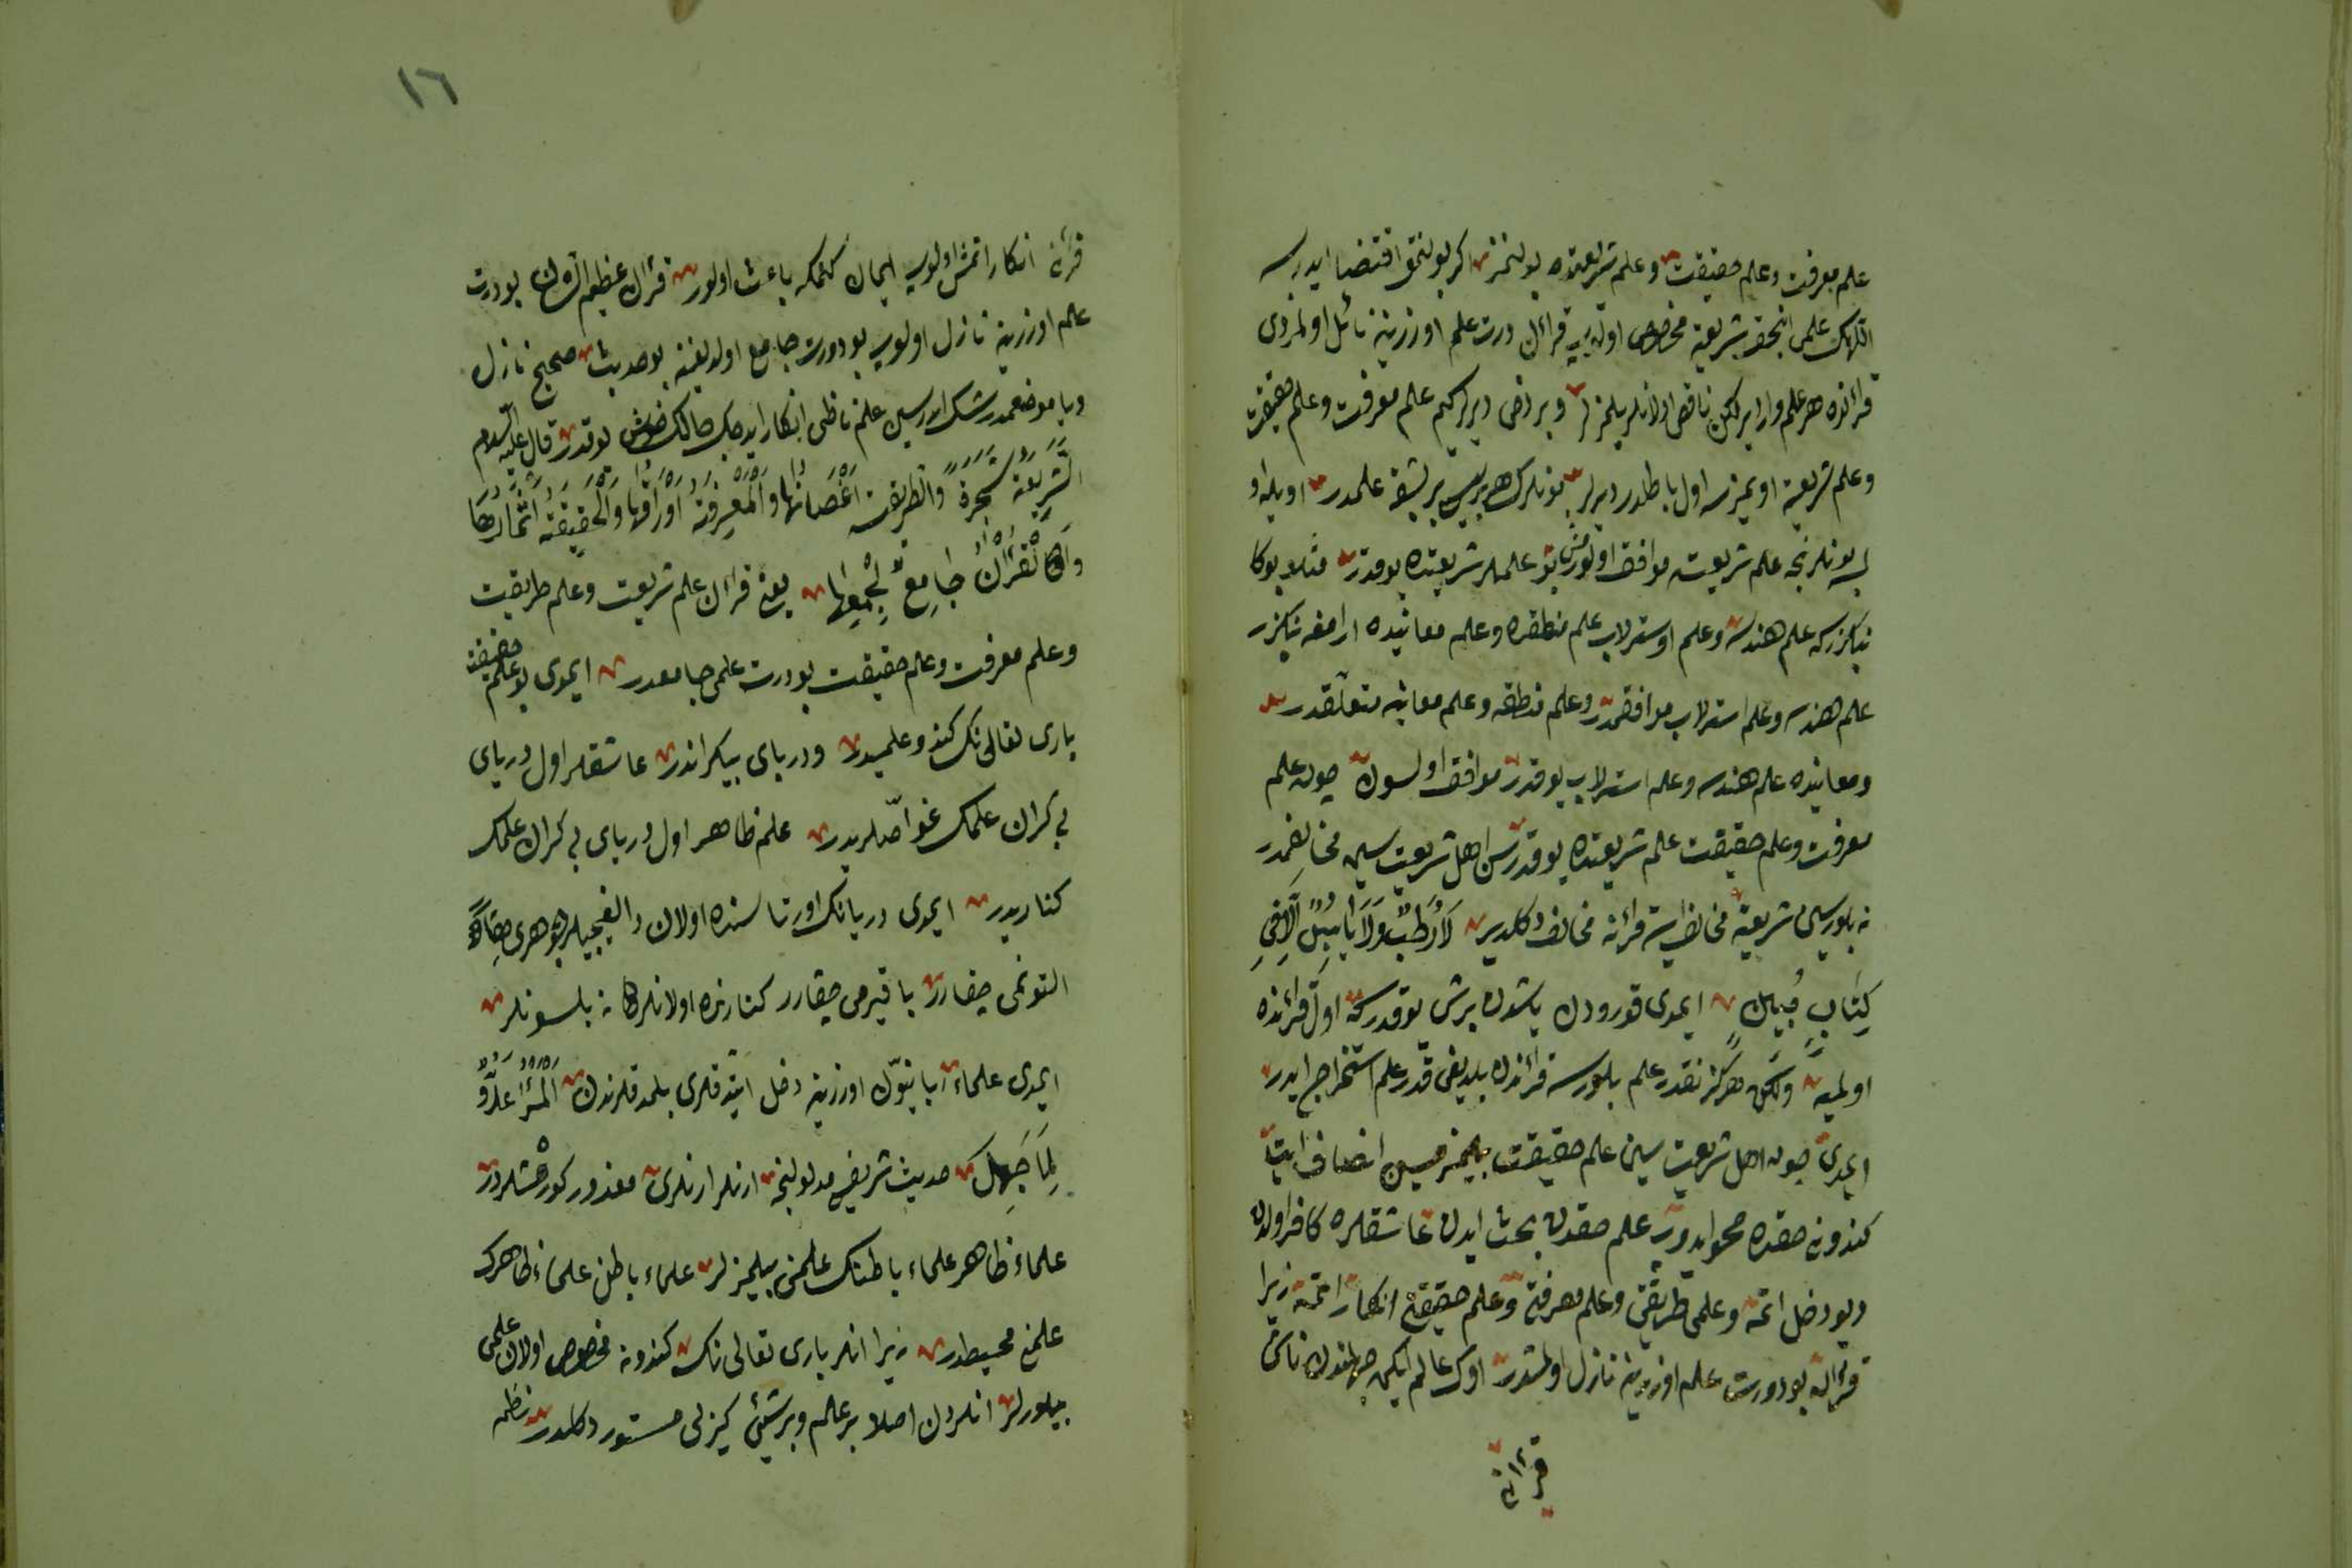 علم معرفت وعلم حقيقت وعلم شريعتده بولنمز اكر بولنمق اقتضا ايدرسه
اللهك علمى انجق شريعته مخصوص اولديى قرائن درت علم اوزرينه نازل اولمزدى
قرائنده هر علم واردير لكن ناقص اولانلر بيلمزلر وبر دخى ديرلركيم علم معرفت وعلم حقيقت
وعلم شريعته اويمزسه اول باطلدر ديرلر بونلرك هر بريسى بر بشقه علمدر اويله اولسه
بونلر نجه علم شريعته موافق اولور بو علملر شريعتده يوقدر مثلا بوكا
بكزركه علم هندسه وعلم اوسترلاب علم منطقده وعلم معانيده ارامغه بكزر
علم هندسه وعلم استرلاب موافقمدر وعلم منطقه وعلم معانيه متعلقدر
ومعانيده علم هندسه وعلم استرلاب يوقدر موافق اولسون چونكه علم
معرفت وعلم حقيقت علم شريعتده يوقدر سن اهل شريعت سين مخالفمدر
نه بلورسين شريعته مخالف ايسه قرائنه مخالف دكلدير لا رطب ولا يابس الا فى
كتاب مبين ايمدى قورودن ياشدن برشى يوقدركه اول قرائنده
اولميه ولكن هركز نقدر علم بلورسه قرائندن بلديغى قدر علم استخراج ايدر
ايمدى چون اهل شريعت سين علم حقيقت بيلمزميسين انصاف ايت
كندونى حقده محو ايدوب علم حقدن بحث ايدن عاشقلره كافر اولدن
ديو دخل اتمه وعلمى طريقتى وعلم معرفتى وعلم حقيقتى انكار اتمه زيرا
قرائن بو درت علم اوزرينه نازل اولمشدر اوك عالم ايكن جهلندن ناشى
قرائنى
١٦
قرائنى انكار اتمش اولوب ايمان كتمكه باعث اولور قرائن عظيم الشان بو درت
علم اوزرينه نازل اولوب بو درت جامع اولديغنه بو حديث صحيح نازل
ويا موضعمدر شك ايدرسين علم ناظى انكار ايدجك حالك خوش يوقدر قال عليه السلام
الشريعة شجرة والطريقت اغصانها والمعرفة اوراقها والحقيقة اثمارها
والقرآن جامع لجميعها يعنى قرائن علم شريعت وعلم طريقت
وعلم معرفت وعلم حقيقت بو درت علمى جامعدر ايمدى بو علم حقيقت
بارى تعالى نك كندو علميدر ودرياى بيكراندر عاشقلر اول درياى
بى كران علمك غواصلريدر علم ظاهر اول درياى بى كران علمك
كناريدر ايمدى دريانك اورتاسنده اولان دالغيجيلر جوهرى
التونمى چقارر باقيرمى چقارر كنارنده اولانلر نه بلسونلر
ايمدى علماء اوزرينه دخل ايتدقلرى بلمدقلرندن المرء عدو
لما جهل حديث شريفى مدلولنجه انلر انلرى معذور كورمشلردر
علماء ظاهر علماء باطنك علمنى بيلمزلر علماء باطن علماء ظاهرك
علمنى محيطدر زيرا انلر بارى تعالى نك كندونه مخصوص اولان علمى
بيلورلر انلردن اصلا بر علم وبرشئ كيزلى مستور دكلدر نظم